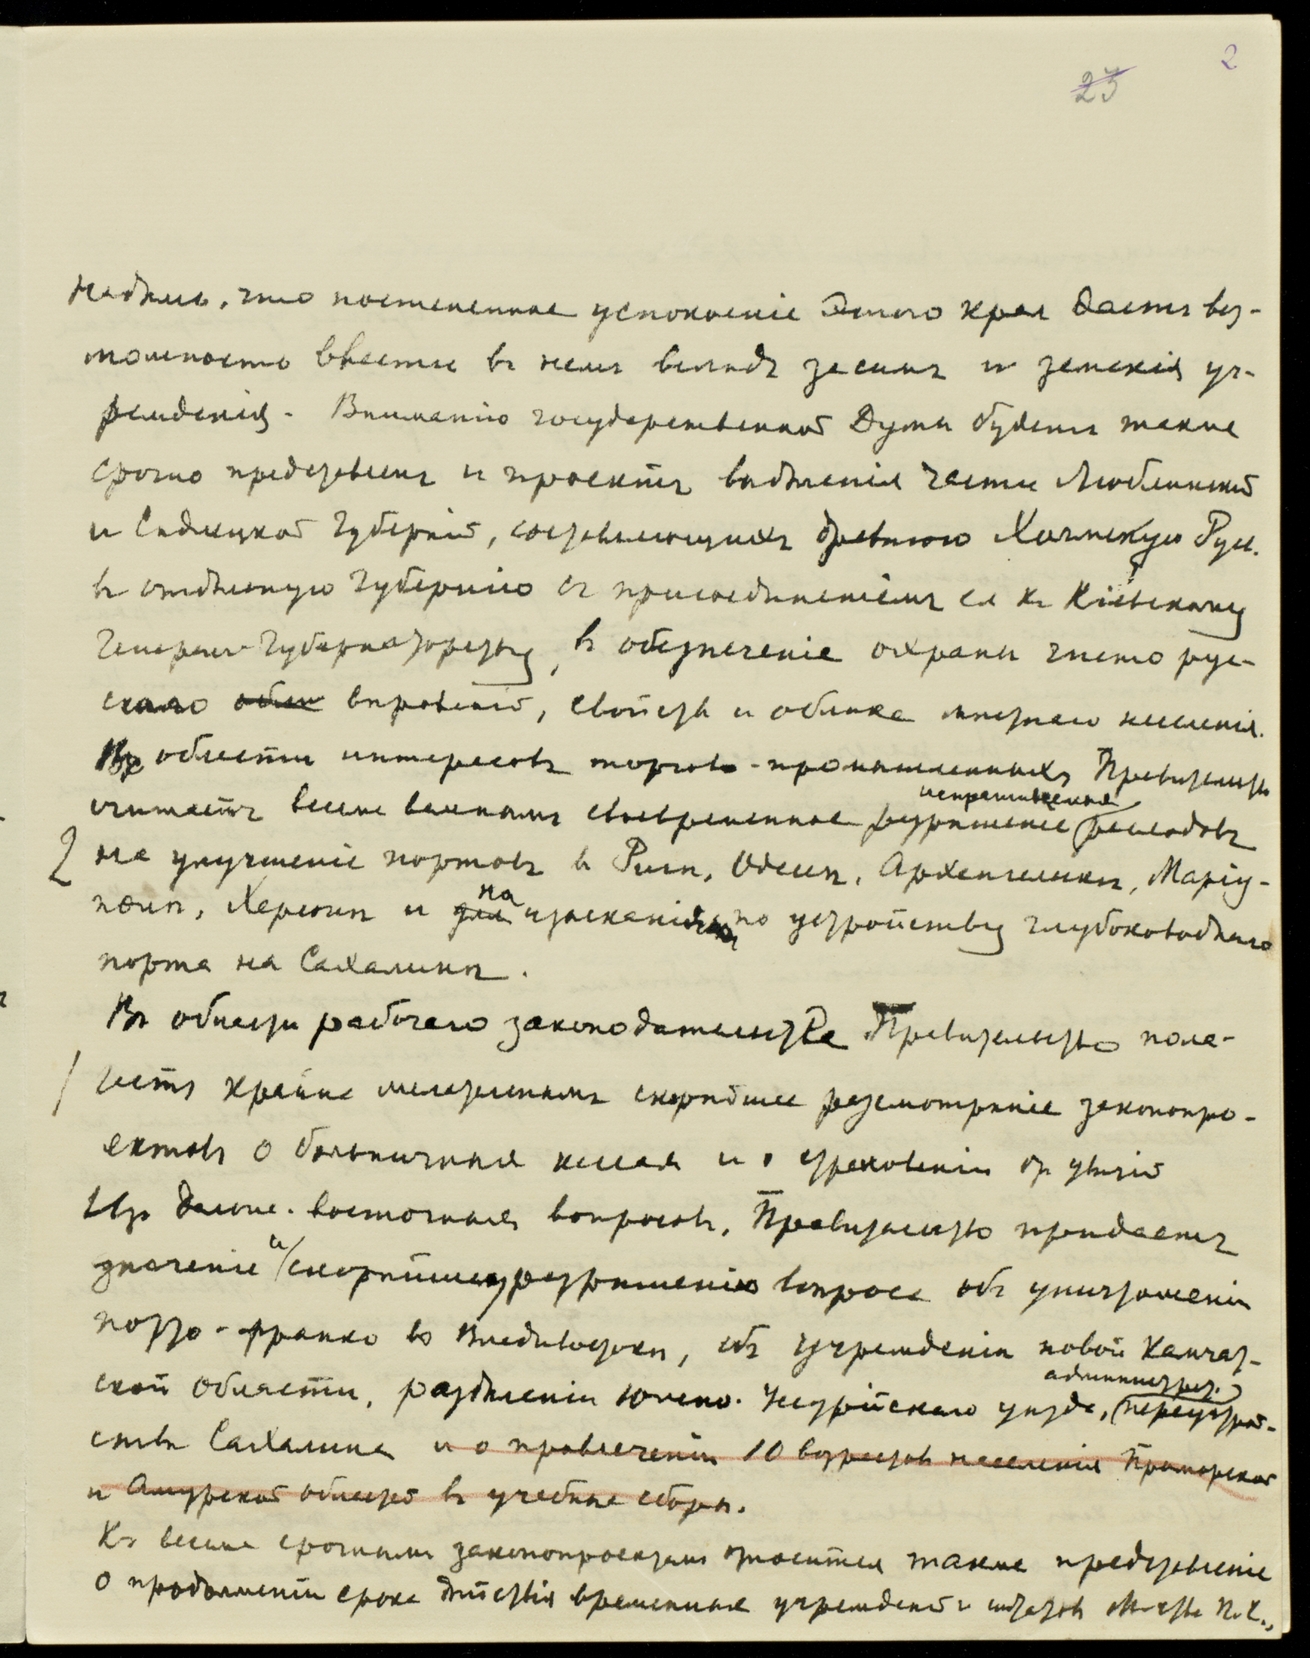 2
23
надѣясь, что постепенное успокоеніе этого края дастъ воз-
можность ввести въ немъ вслѣдъ засимъ и земскія уч-
режденія. Вниманію Государственной Думы будетъ также
срочно представленъ и проектъ выдѣленія части Люблинской
и Сѣдлецкой губерній, составляющихъ древнюю Холмскую Русь
въ отдѣльную губернію съ присоединеніемъ ея къ Кіевскому
Генералъ-Губернаторству, въ обезпеченіе охраны чисто рус-
скаго обли вѣрованій, свойствъ и облика мѣстнаго населенія.
Въ области интересовъ торгово-промышленныхъ Правительство
испрашиваемыхъ
считаетъ весьма важнымъ своевременное разрѣшеніе расходовъ
2 на улучшеніе портовъ въ Ригѣ, Одессѣ, Архангельскѣ, Маріу-
на
полѣ, Херсонѣ и для изысканія по устройству глубоководнаго
порта на Сахалинѣ.
Въ области рабочаго законодательства Правительство пола-
гаетъ крайне желательнымъ скорѣйшее разсмотрѣніе законопро-
ектовъ о больничныхъ кассахъ и о страхованіи отъ увѣчій
Изъ дальне-восточныхъ вопросовъ, Правительство придаетъ
значеніе и скорѣйшему разрѣшенію вопроса объ уничтоженіи
порто-франко во Владивостокѣ, объ учрежденіи новой Камчат-
администрат.
ской области, раздѣленіи Южно-Уссурійскаго уѣзда, переустрой-
ствѣ Сахалина и о привлеченіи 10 возрастовъ населенія Приморской
и Амурской областей въ учебные сборы.
Къ весьма срочнымъ законопроектамъ относится также представленіе
о продолженіи срока дѣйствія временныхъ учрежденій и штатовъ М-ства П.С.,